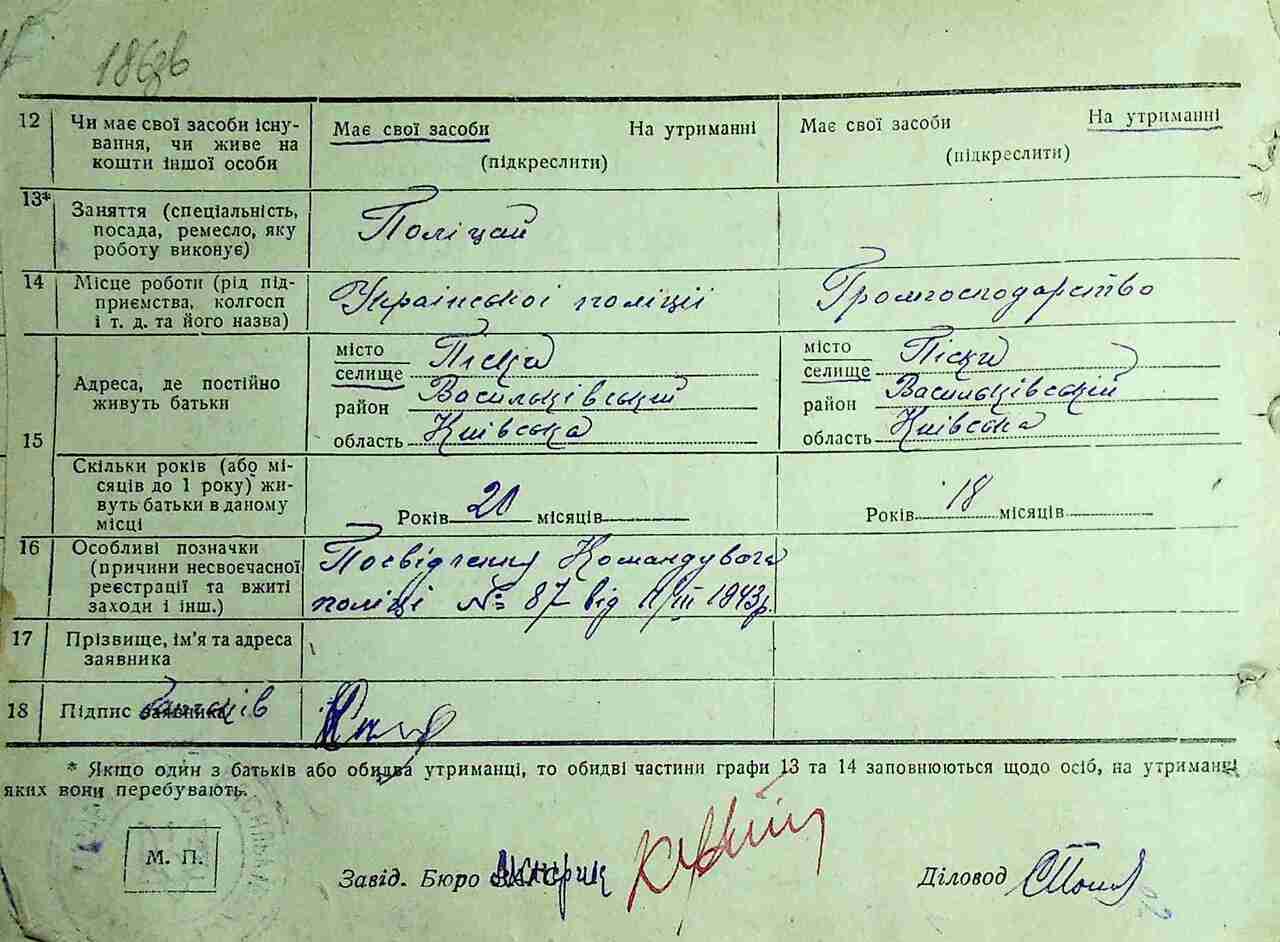 186зв
12 Чи має свої засоби існу-
вання, чи живе на
кошти іншої особи
Має свої засоби На утриманні
(підкреслити)
Має свої засоби На утриманні
(підкреслити)
13* Заняття (спеціальність,
посада, ремесло, яку
роботу виконує)
Поліцай
14 Місце роботи (рід під-
приємства, колгосп
і т. д. та його назва)
Української поліції
Громгосподарство
15 Адреса, де постійно
живуть батьки
місто
селище Піски
район Васильківський
область Київська
місто
селище Піски
район Васильківський
область Київська
Скільки років (або мі-
сяців до 1 року) жи-
вуть батьки в даному
місці
Років 20 місяців
Років 18 місяців
16 Особливі позначки
(причини несвоєчасної
реєстрації та вжиті
заходи і інш.)
Посвідчення Командувача
поліці № 87 від 11/III 1943р.
17 Прізвище, ім'я та адреса
заявника
18 Підпис заявника
* Якщо один з батьків або обидва утриманці, то обидві частини графи 13 та 14 заповнюються щодо осіб, на утриманні
яких вони перебувають.
М. П.
Завід. Бюро
Діловод